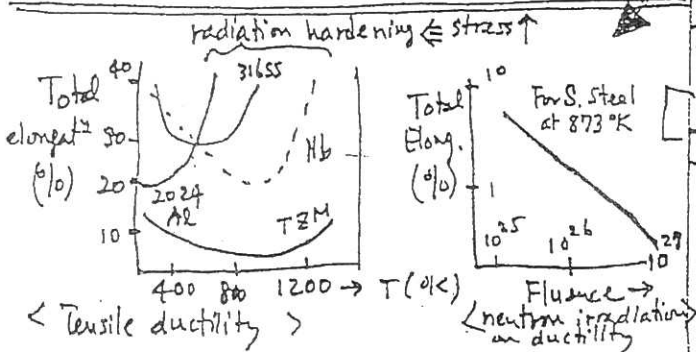 radiation hardening ⇐ stress ↑
Total elongatⁿ (%)
40
30
20
10
316SS
2024 Al
Nb
TZM
400 800 1200 → T(°K)
< Tensile ductility >
Total Elong. (%)
10
1
For S. Steel
at 873 °K
10²⁵ 10²⁶ 10²⁷
Fluence →
< neutron irradiation >
on ductility